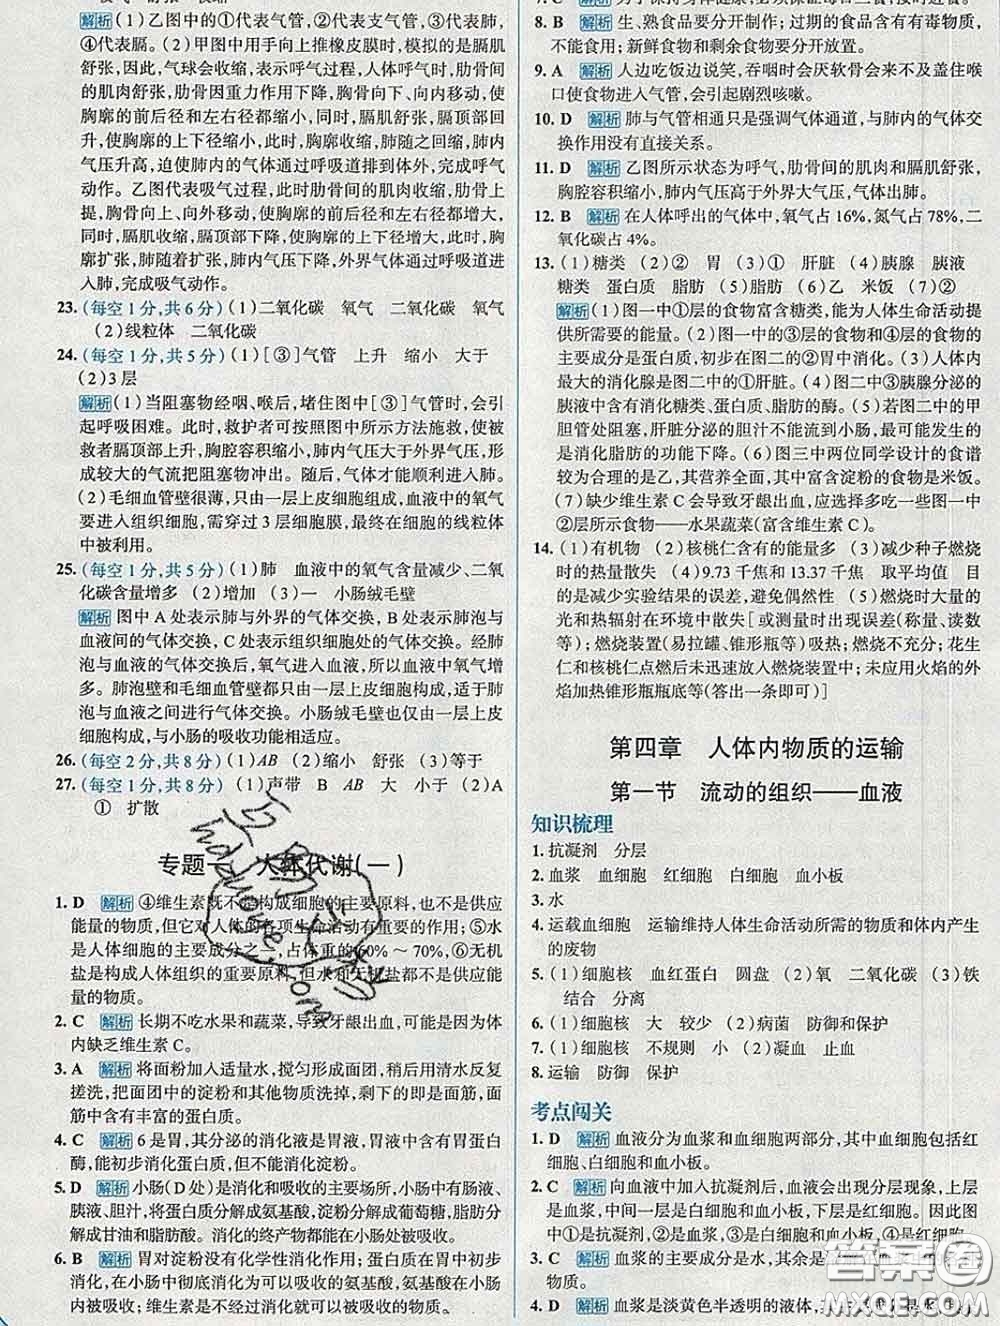 解析 (1)乙图中的①代表气管,②代表支气管,③代表肺,
④代表膈。(2)甲图中用手向上推橡皮膜时,模拟的是膈肌
舒张,因此,气球会收缩,表示呼气过程,人体呼气时,肋骨间
的肌肉舒张,肋骨因重力作用下降,胸骨向下、向内移动,使
胸廓的前后径和左右径都缩小,同时,膈肌舒张,膈顶部回
升,使胸廓的上下径缩小,这样,胸廓随之回缩,肺内
气压升高,迫使肺内的气体通过呼吸道排到体外,完成呼气
动作。乙图代表吸气过程,此时肋骨间的肌肉收缩,肋骨上
提,胸骨向上、向外移动,使胸廓的前后径和左右径都增大,
同时,膈肌收缩,膈顶部下降,使胸廓的上下径增大,这样,胸
廓扩张,肺随着扩张,肺内气压下降,外界气体通过呼吸道进
入肺,完成吸气动作。
23. (每空1分,共6分) (1)二氧化碳 氧气 二氧化碳 氧气
(2)线粒体 二氧化碳
24. (每空1分,共5分) (1)[③]气管 上升 缩小 大于
(2)3层
解析 (1)当阻塞物经咽、喉后,堵住图中[③]气管时,会引
起呼吸困难。此时,救护者可按照图中所示方法施救,使被
救者膈顶部上升,胸腔容积缩小,肺内气压大于外界气压,形
成较大的气流把阻塞物冲出。随后,气体才能顺利进入肺。
(2)毛细血管壁很薄,只由一层上皮细胞组成,血液中的氧气
要进入组织细胞,需穿过3层细胞膜,最终在细胞的线粒体
中被利用。
25. (每空1分,共5分) (1)肺 血液中的氧气含量减少、二氧
化碳含量增多 (2)增加 (3)一 小肠绒毛壁
解析 图中A处表示肺与外界的气体交换,B处表示肺泡与
血液间的气体交换,C处表示组织细胞处的气体交换。经肺
泡与血液的气体交换后,氧气进入血液,所以血液中氧气增
多。肺泡壁和毛细血管壁都只由一层上皮细胞构成,适于肺
泡与血液之间进行气体交换。小肠绒毛壁也仅由一层上皮
细胞构成,与小肠的吸收功能相适应。
26. (每空2分,共8分) (1)AB (2)缩小 舒张 下
27. (每空1分,共8分) (1)声带 B AB 大 小于 (2)A
① 扩散
专题一 人体代谢(一)
1. D 解析 ④维生素既不是构成细胞的主要原料,也不是供应
能量的物质,但它对人体的各项生命活动有重要的作用;⑤水
是人体细胞的主要成分之一,占体重的60%～70%,⑥无机
盐是构成人体组织的重要原料,但水和无机盐都不是供应能
量的物质。
2. C 解析 长期不吃水果和蔬菜,导致牙龈出血,可能是因为体
内缺乏维生素C。
3. A 解析 将面粉加入适量水,搅匀形成面团,稍后用清水反复
搓洗,把面团中的淀粉和其他物质洗掉,剩下的即是面筋,面
筋中含有丰富的蛋白质。
4. C 解析 6是胃,其分泌的消化液是胃液,胃液中含有胃蛋白
酶,能初步消化蛋白质,但不能消化淀粉。
5. D 解析 小肠(D处)是消化和吸收的主要场所,小肠中有肠液、
胰液、胆汁,将蛋白质分解成氨基酸,淀粉分解成葡萄糖,脂肪分
解成甘油和脂肪酸。消化的终产物都能在小肠处被吸收。
6. B 解析 胃对淀粉没有化学性消化作用;蛋白质在胃中初步
消化,在小肠中彻底消化为可以吸收的氨基酸,氨基酸在小肠
内被吸收;维生素是不经过消化就可直接被吸收的物质。
8. B 解析 生、熟食品要分开制作;过期的食品含有有毒物质,
不能食用;新鲜食物和剩余食物要分开放置。
9. A 解析 人边吃饭边说笑,吞咽时会厌软骨会来不及盖住喉
口使食物进入气管,会引起剧烈咳嗽。
10. D 解析 肺与气管相通只是强调气体通道,与肺内的气体交
换作用没有直接关系。
11. D 解析 乙图所示状态为呼气,肋骨间的肌肉和膈肌舒张,
胸腔容积缩小,肺内气压高于外界大气压,气体出肺。
12. B 解析 在人体呼出的气体中,氧气占16%,氮气占78%,二
氧化碳占4%。
13. (1)糖类 (2)② 胃 (3)① 肝脏 (4)胰腺 胰液
糖类 蛋白质 脂肪 (5)脂肪 (6)乙 米饭 (7)②
解析 (1)图一中①层的食物富含糖类,能为人体生命活动提
供所需要的能量。(2)图一中的③层的食物和④层的食物的
主要成分是蛋白质,初步在图二的②胃中消化。(3)人体内
最大的消化腺是图二中的①肝脏。(4)图二中③胰腺分泌的
胰液中含有消化糖类、蛋白质、脂肪的酶。(5)若图二中的甲
胆管处阻塞,肝脏分泌的胆汁不能流到小肠,最可能发生的
是消化脂肪的功能下降。(6)图三中两位同学设计的食谱
较为合理的是乙,其营养全面,其中富含淀粉的食物是米饭。
(7)缺少维生素C会导致牙龈出血,应选择多吃一些图一中
②层所示食物——水果蔬菜(富含维生素C)。
14. (1)有机物 (2)核桃仁含有的能量多 (3)减少种子燃烧
时的热量散失 (4)9.73千焦和13.37千焦 取平均值 目
的是减少实验结果的误差,避免偶然性 (5)燃烧时大量的
光和热辐射在环境中散失[或测量时出现误差(称量、读数
等);燃烧装置(易拉罐、锥形瓶等)吸热;燃烧不充分;花生
仁和核桃仁点燃后未迅速放入燃烧装置中;未应用火焰的外
焰加热锥形瓶瓶底等(答出一条即可)]
第四章 人体内物质的运输
第一节 流动的组织——血液
知识梳理
1. 抗凝剂 分层
2. 血浆 血细胞 红细胞 白细胞 血小板
3. 水
4. 运载血细胞 运输维持人体生命活动所需的物质和体内产生
的废物
5. (1)细胞核 血红蛋白 圆盘 (2)氧 二氧化碳 (3)铁
结合 分离
6. (1)细胞核 大 较少 (2)病菌 防御和保护
7. (1)细胞核 不规则 小 (2)凝血 止血
8. 运输 防御 保护
考点闯关
1. D 解析 血液分为血浆和血细胞两部分,其中血细胞包括红
细胞、白细胞和血小板。
2. C 解析 向血液中加入抗凝剂后,血液会出现分层现象,上层
是血浆,中间一层是白细胞和血小板,下层是红细胞。因此图
中①是抗凝剂,②是血浆,③是白细胞和血小板,④是红细胞。
3. C 解析 血浆的主要成分是水,其余
物质。
4. D 解析 血浆是淡黄色半透明的液体,
答案圈
MXQE.COM